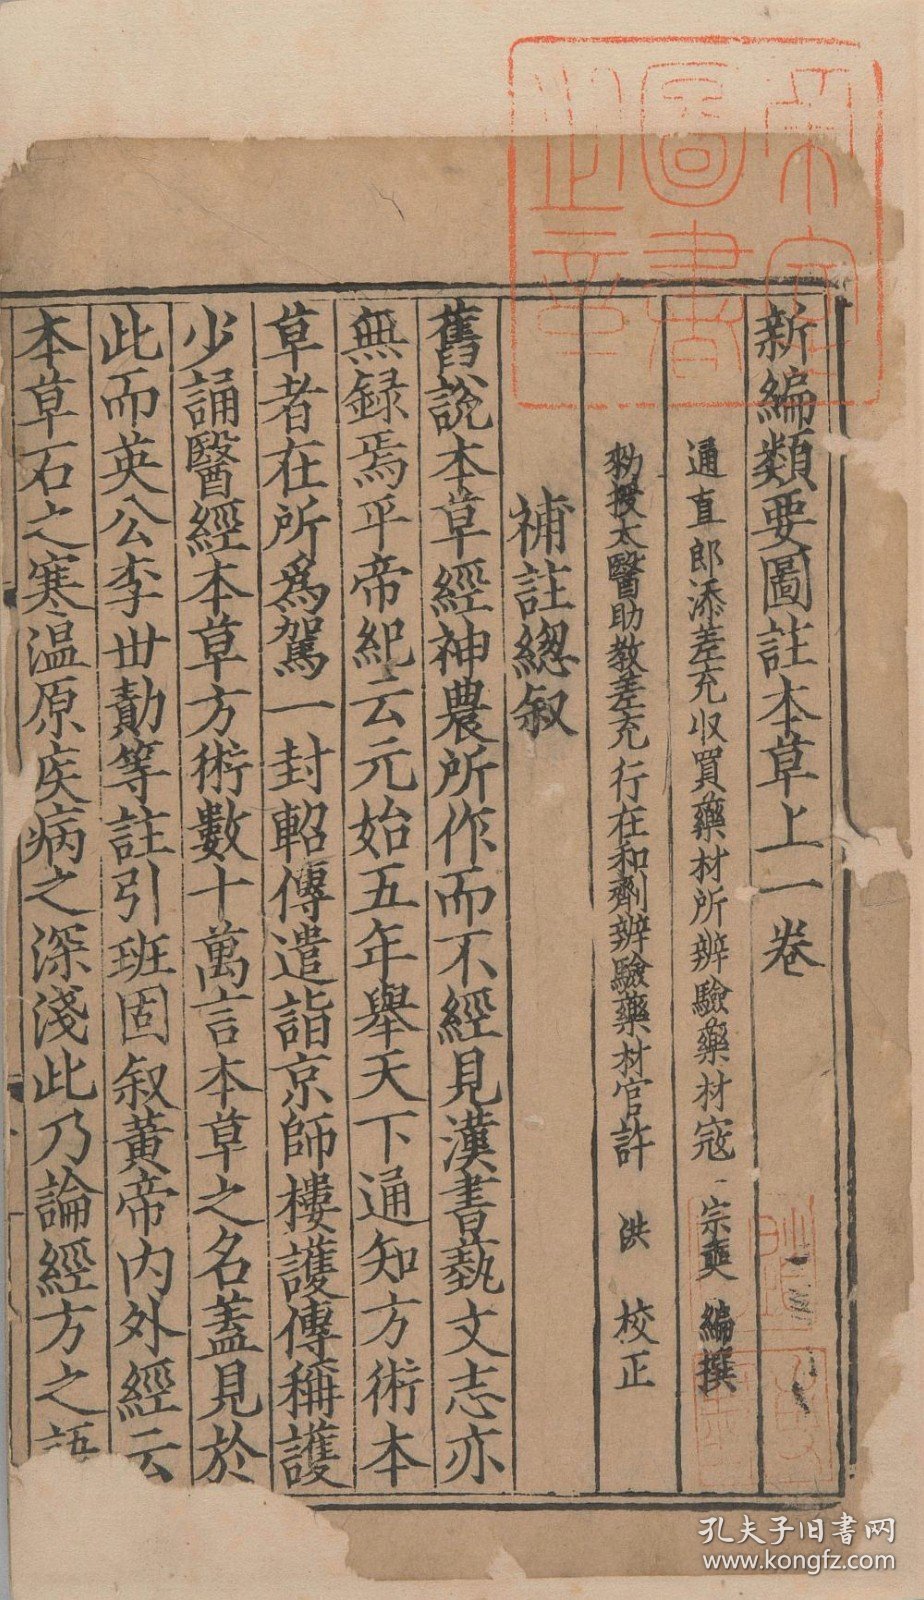 新編類要圖註本草上一卷
通直郎添差充收買藥材所辨驗藥材寇宗奭編撰
勑授太醫助教差充行在和劑辨驗藥材官許洪校正
補註緫叙
舊說本草經神農所作而不經見漢書藝文志亦
無録焉平帝紀云元始五年舉天下通知方術本
草者在所爲駕一封軺傳遣詣京師樓護傳稱護
少誦醫經本草方術數十萬言本草之名蓋見於
此而英公李世勣等註引班固叙黃帝內外經云
本草石之寒温原疾病之深淺此乃論經方之語
圖書
之章
孔夫子旧书网
www.kongfz.com